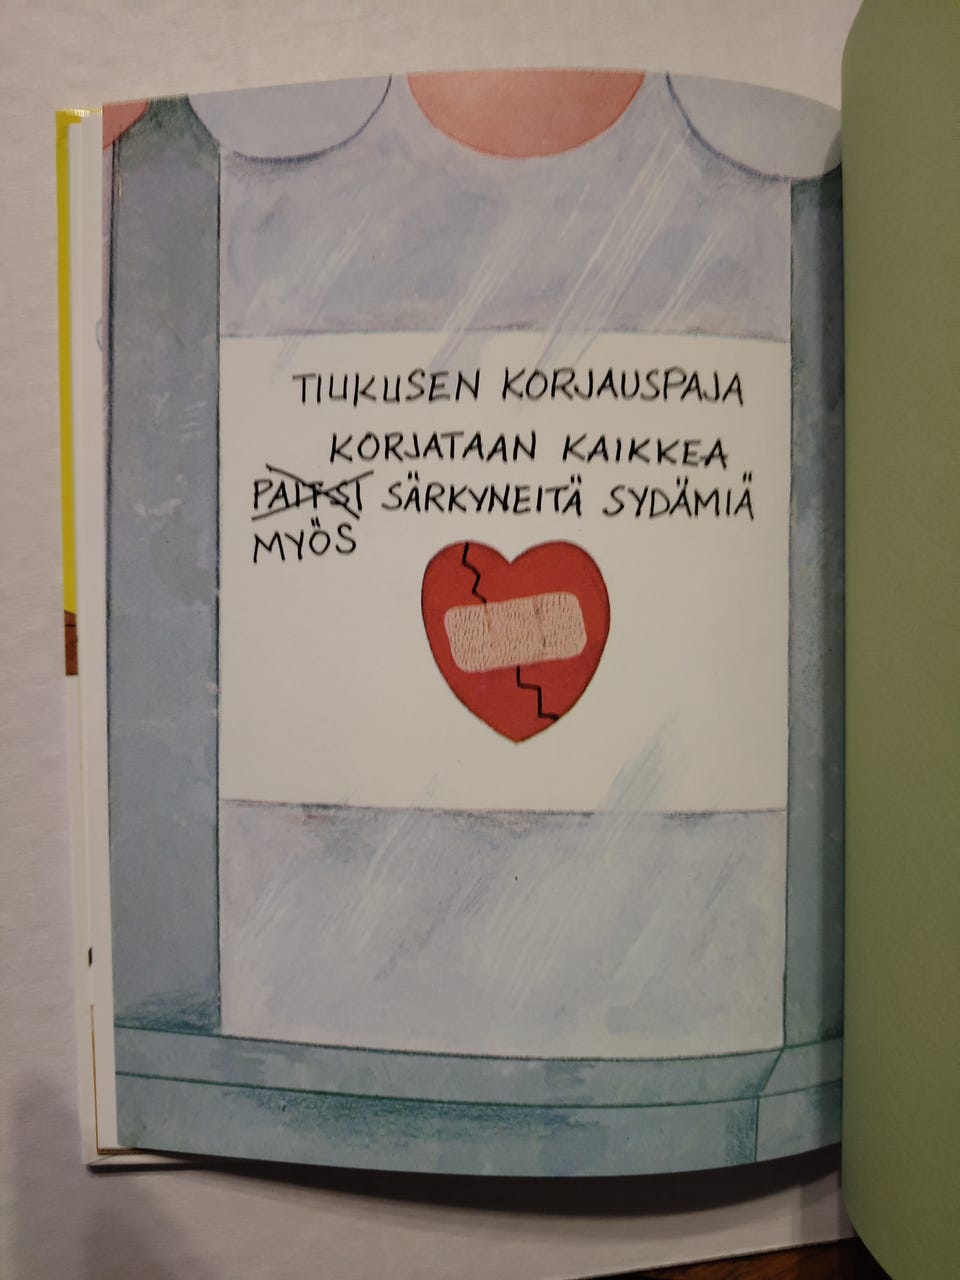 TIUKUSEN KORJAUSPAJA
KORJATAAN KAIKKEA
PAITSI SÄRKYNEITÄ SYDÄMIÄ
MYÖS